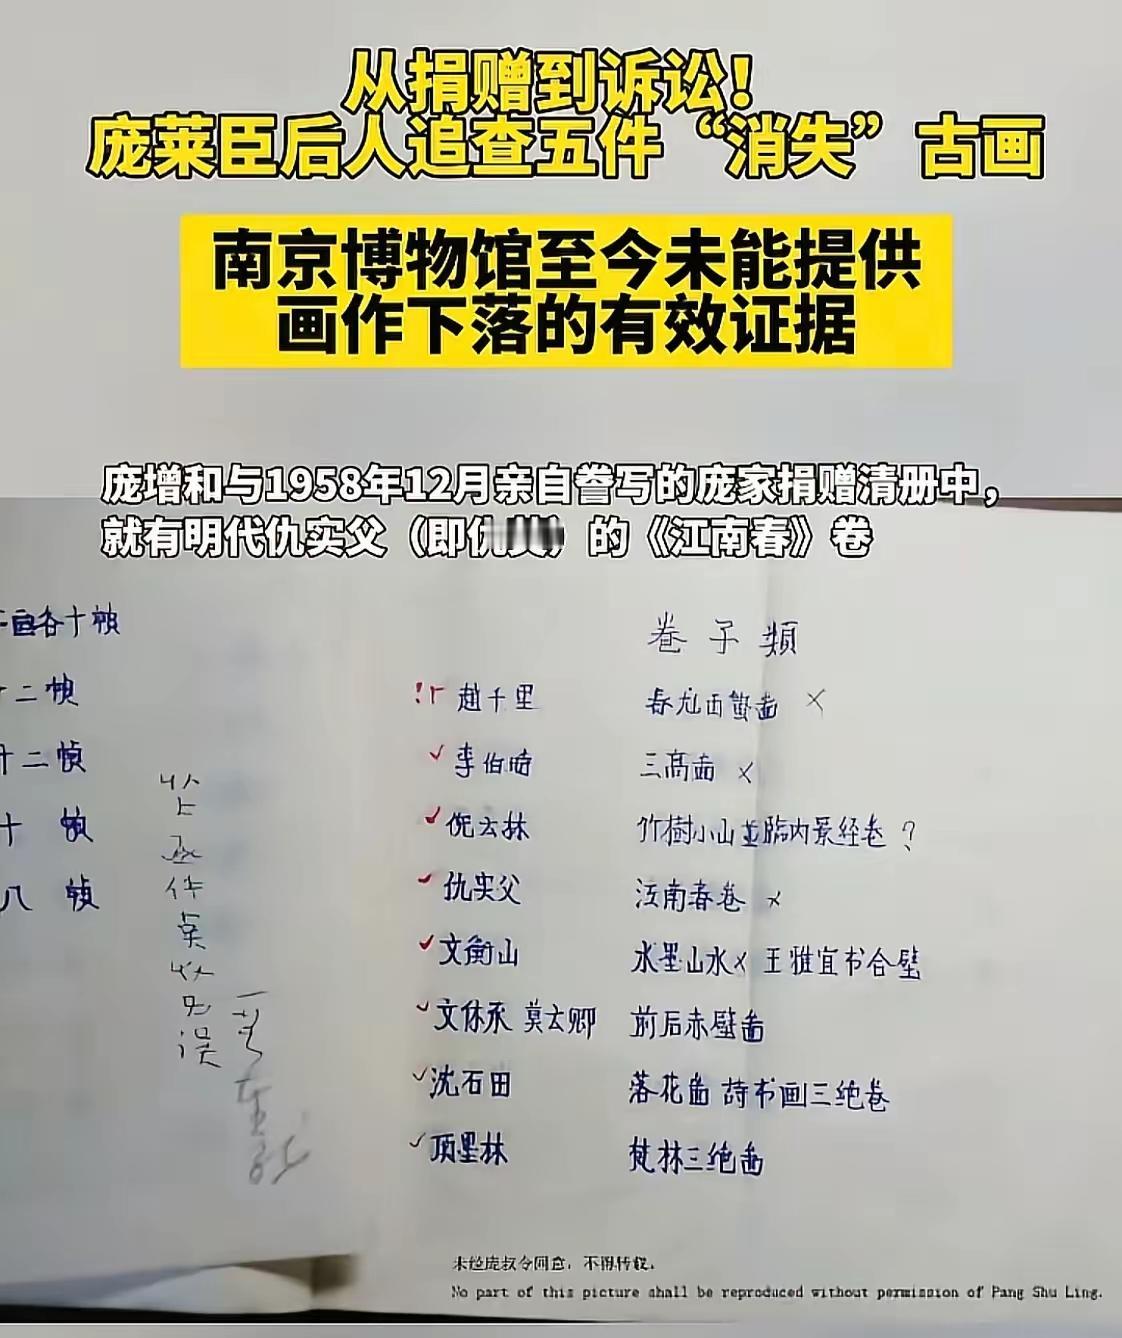 从捐赠到诉讼！
庞莱臣后人追查五件“消失”古画
南京博物馆至今未能提供
画作下落的有效证据
庞增和与1958年12月亲自誊写的庞家捐赠清册中，
就有明代仇实父（即仇英）的《江南春》卷
各十幀
十二幀
廿二幀
十 幀
八 幀
卷子類
趙千里 春龙啚 ×
李伯时 三高啚 ×
倪云林 竹樹小山並臨内景经卷 ?
仇实父 江南春卷 ×
文衡山 水墨山水× 王雅宜书合璧
文休承 莫云卿 前后赤壁啚
沈石田 落花啚 诗书画三绝卷
项墨林 梵林三绝啚
收 件 無 误
未经庞叔令同意，不得转载。
No part of this picture shall be reproduced without permission of Pang Shu Ling.